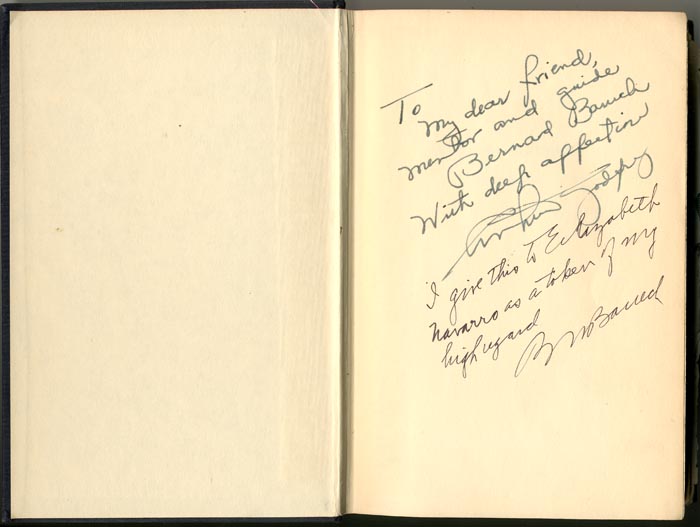 To
my dear friend,
mentor and guide
Bernard Baruch
With deep affection
Arthur Godfrey
I give this to Elizabeth
Navarro as a token of my
high regard
B M Baruch